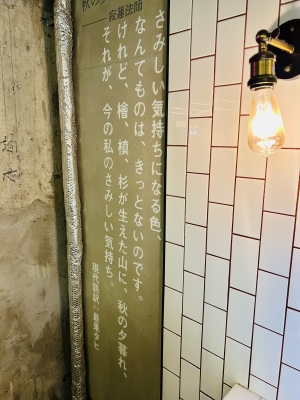 さみしい気持ちになる色、
なんてものは、きっとないのです。
けれど、檜、槙、杉が生えた山に、秋の夕暮れ、
それが、今の私のさみしい気持ち。
現代語訳・最果タヒ
寂蓮法師
秋の夕